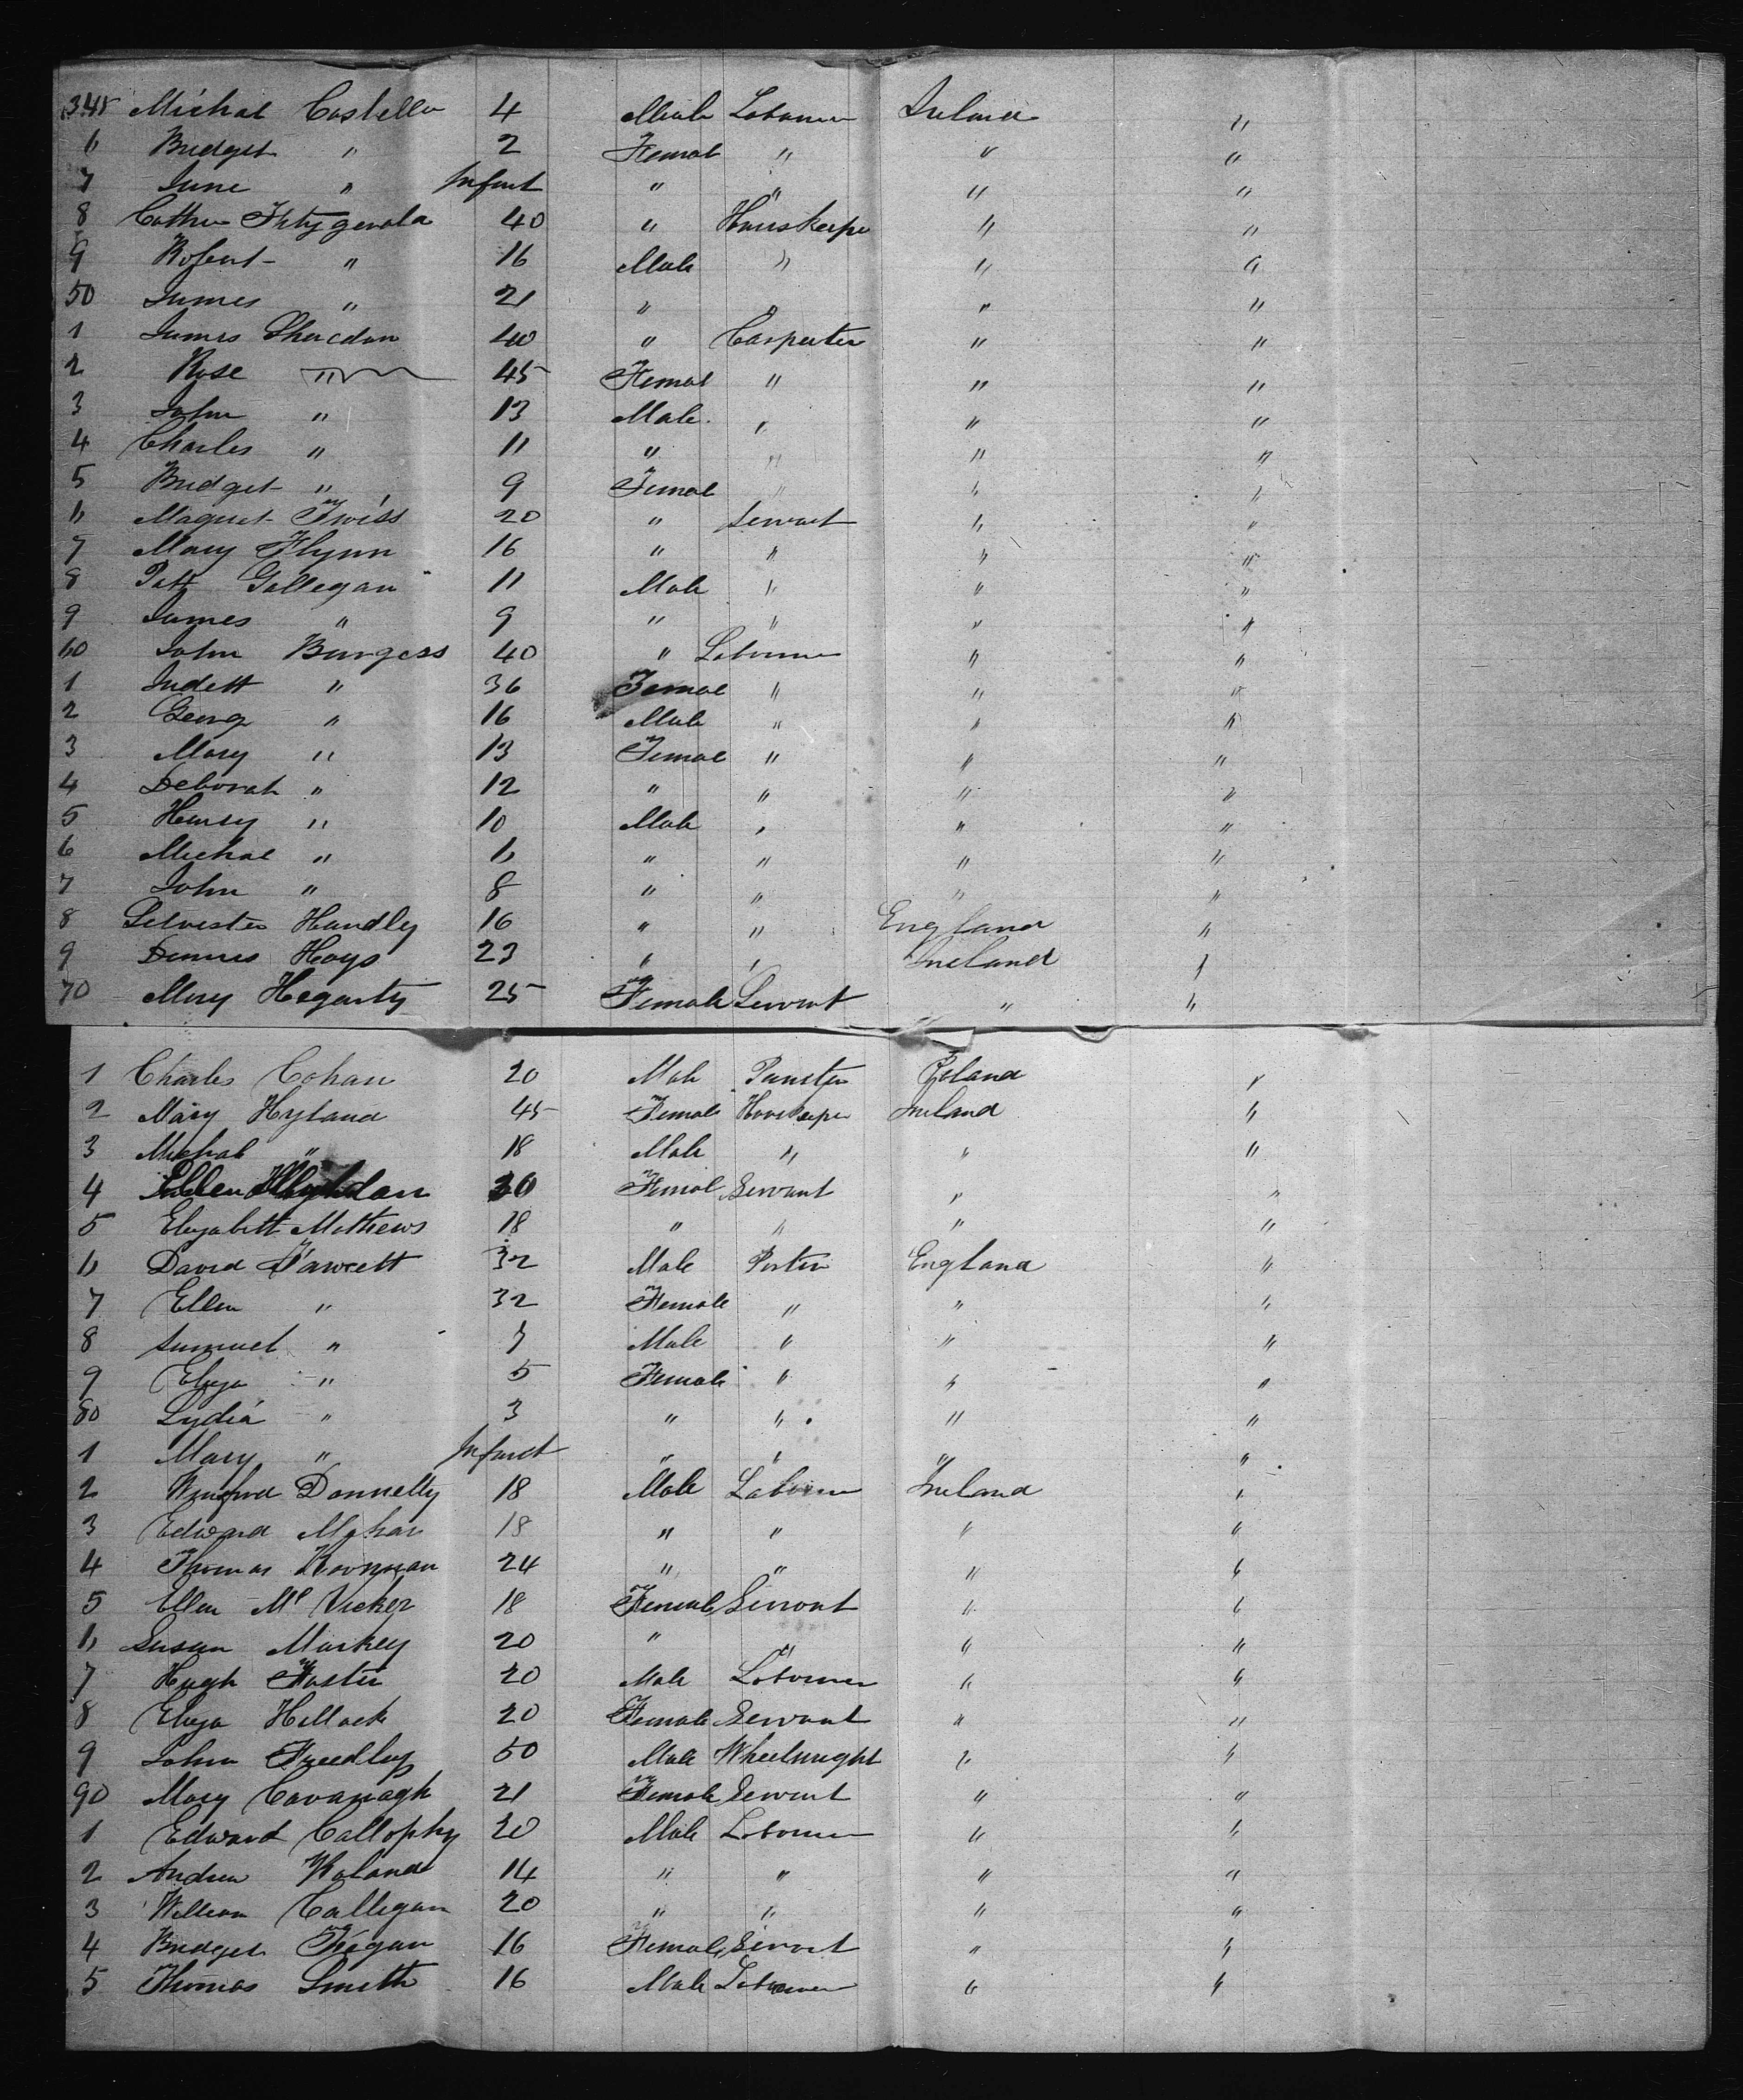 345 Michal Costello 4 Male Laborer Ireland "
6 Bridget " 2 Femal " " "
7 Jane " Infant " " " "
8 Cathr Fitzgerald 40 " Houskeepr " "
9 Robert " 16 Male " " "
50 James " 21 " " " "
1 James Sheredan 40 " Carpenter " "
2 Rose " 45 Femal " " "
3 John " 13 Male " " "
4 Charles " 11 " " " "
5 Bridget " 9 Femal " " "
6 Magret Twiss 20 " Servant " "
7 Mary Flynn 16 " " " "
8 Patk Gallegan 11 Male " " "
9 James " 9 " " " "
60 John Burgess 40 " Laborer " "
1 Judett " 36 Femal " " "
2 Georg " 16 Male " " "
3 Mary " 13 Femal " " "
4 Deborah " 12 " " " "
5 Henry " 10 Male " " "
6 Michal " 6 " " " "
7 John " 8 " " " "
8 Selvester Handly 16 " " England "
9 Dennis Hays 23 " " Ireland "
70 Mary Hegarty 25 Female Servant " "
1 Charles Cohan 20 Male Poland "
2 Mary Hyland 45 Female Houskeepr Ireland "
3 Michal " 18 Male " " "
4 Ellen 30 Femal Servant " "
5 Elizabett Mathews 18 " " " "
6 David Fawcett 32 Male Porter England "
7 Ellen " 32 Female " " "
8 Samuel " 7 Male " " "
9 Eliza " 5 Female " " "
80 Lydia " 3 " " " "
1 Mary " Infant " " " "
2 Winifred Donnelly 18 Male Laborer Ireland "
3 Edward 18 " " " "
4 Thomas 24 " " " "
5 Ellen Mc Vicker 18 Female Servant " "
6 Susan Markey 20 " " " "
7 Hugh Foster 20 Male Laborer " "
8 Eliza Hillock 20 Female Servant " "
9 John Freedley 50 Male Wheelwright " "
90 Mary Cavanagh 21 Female Servant " "
1 Edward Callophy 20 Male Laborer " "
2 Andrew 14 " " " "
3 William Calligan 20 " " " "
4 Bridget Fegan 16 Female Servant " "
5 Thomas Smith 16 Male Laborer " "